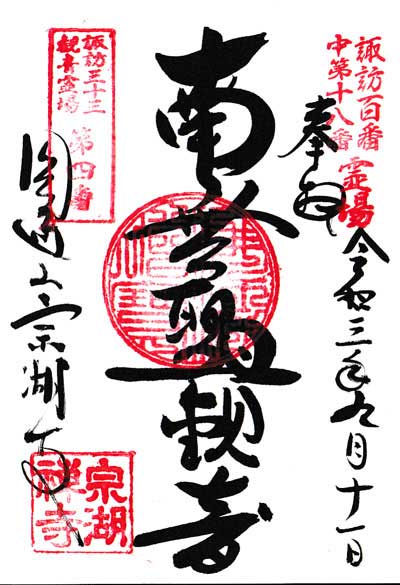 諏訪百番
中第十八番霊場
奉
令和三年九月十一日
南無
観音
諏訪三十三
観音霊場
第四番
圓通山宗湖寺
宗湖
禅寺